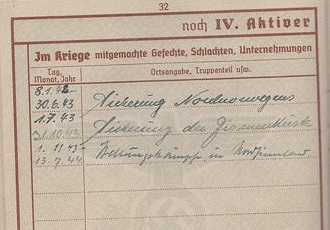 32
noch IV. Aktiver
Im Kriege mitgemachte Gefechte, Schlachten, Unternehmungen
Tag, Monat, Jahr
Ortsangabe, Truppenteil usw.
8.1.42-
30.6.43 Sicherung Nordnorwegens
1.7.43
31.10.43 Sicherung der Eismeerküste
1.11.43-
13.7.44 Stellungskämpfe in Nordfinnland.